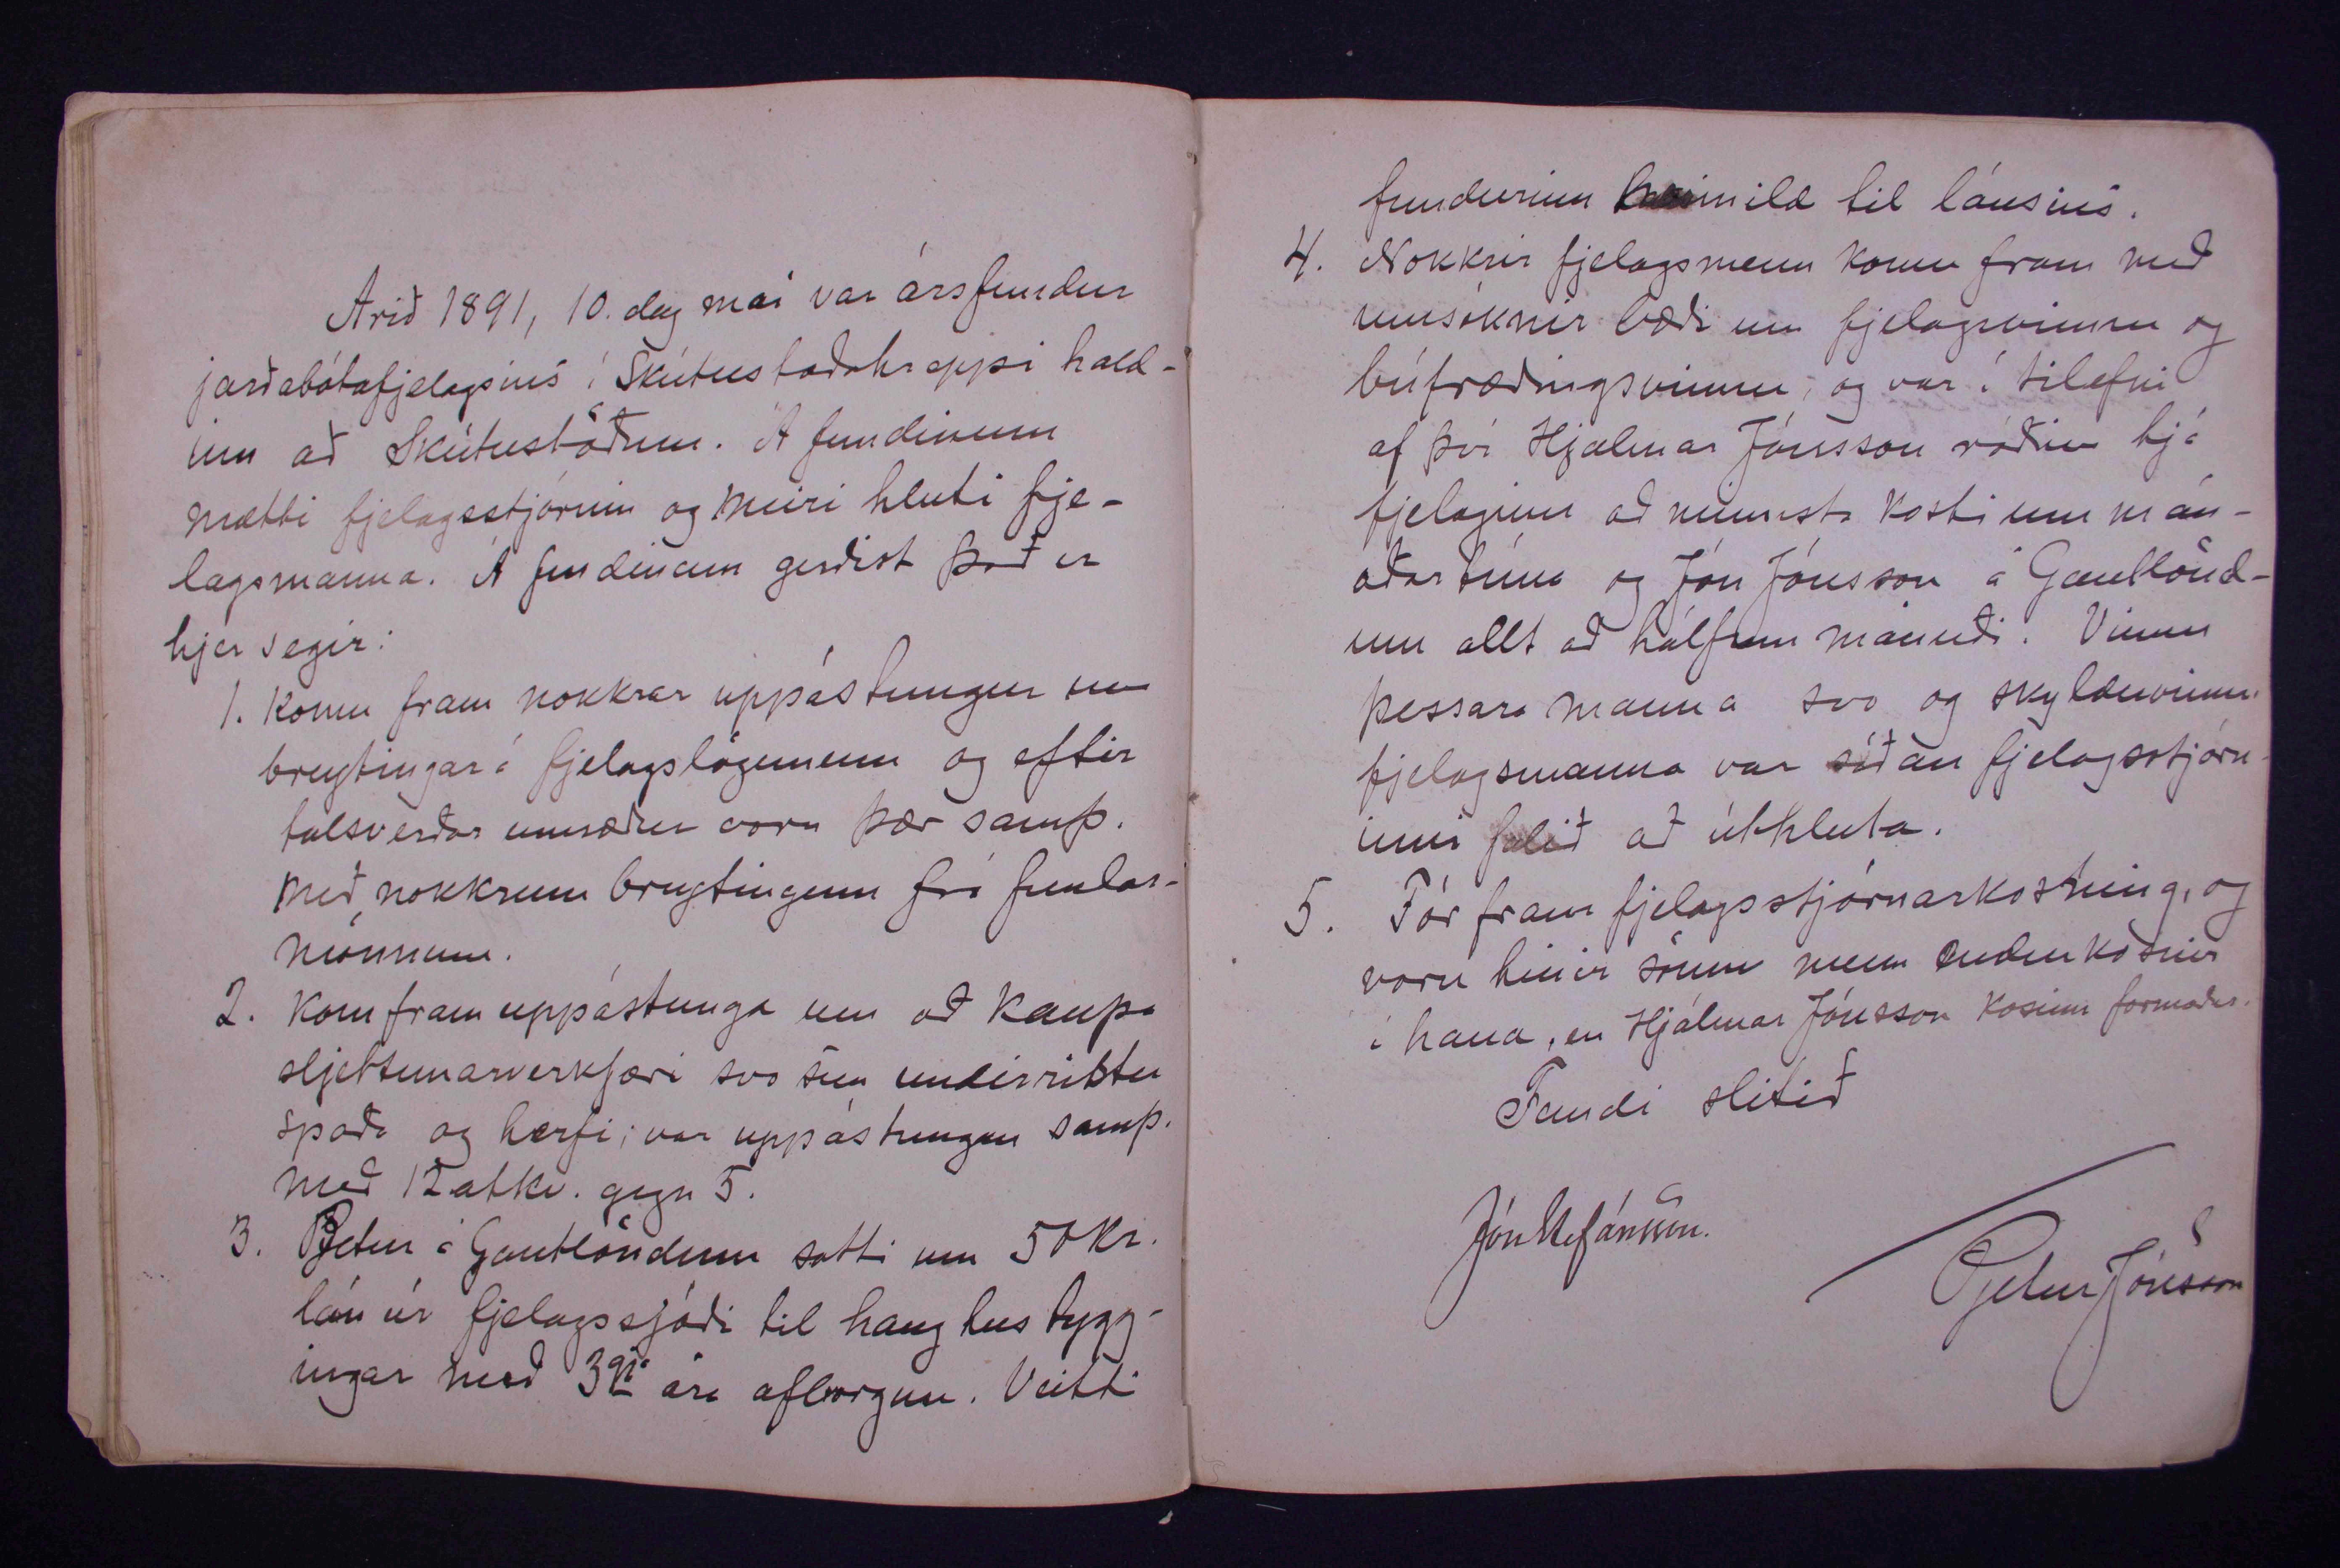 Árið 1891, 10. dag maí var ársfundur
jarðabótafjelagsins í Skútustaðahreppi hald-
inn að Skútustöðum. Á fundinum
mætti fjelagsstjórnin og meiri hluti fje-
lagsmanna. Á fundinum gerðist það er
hjer segir:
1. Komu fram nokkrar uppástungur um
breytingar á fjelagslögunum og eftir
talsverðar umræður voru þær samþ.
með nokkrum breytingum frá fundar-
mönnum.
2. Kom fram uppástunga um að kaupa
sljettunarverkfæri svo sem undirristu
spaða og herfi; var uppástungan samþ.
með 12 atkv. gegn 5.
3. Pjetur á Gautlöndum sótti um 50 kr.
lán úr fjelagssjóði til haughusbygg-
ingar með 3gja ára afborgun. Veitti
fundurinn heimild til lánsins.
4. Nokkrir fjelagsmenn komu fram með
umsóknir bæði um fjelagsvinnu og
búfræðingsvinnu, og var í tilefni
af því Hjálmar Jónsson ráðinn hjá
fjelaginu að minnsta kosti um mán-
aðartíma og Jón Jónsson á Gautlönd-
um allt að hálfum mánuði. Vinnu
þessara manna svo og skylduvinnu
fjelagsmanna var síðan fjelagsstjórn-
inni falið að útkluta.
5. Fór fram fjelagsstjórnarkosning, og
voru hinir sömu menn endurkosnir
í hana, en Hjálmar Jónsson kosinn formaður.
Fundi slitið
Jón Stefánsson.
Pjetur Jónsson